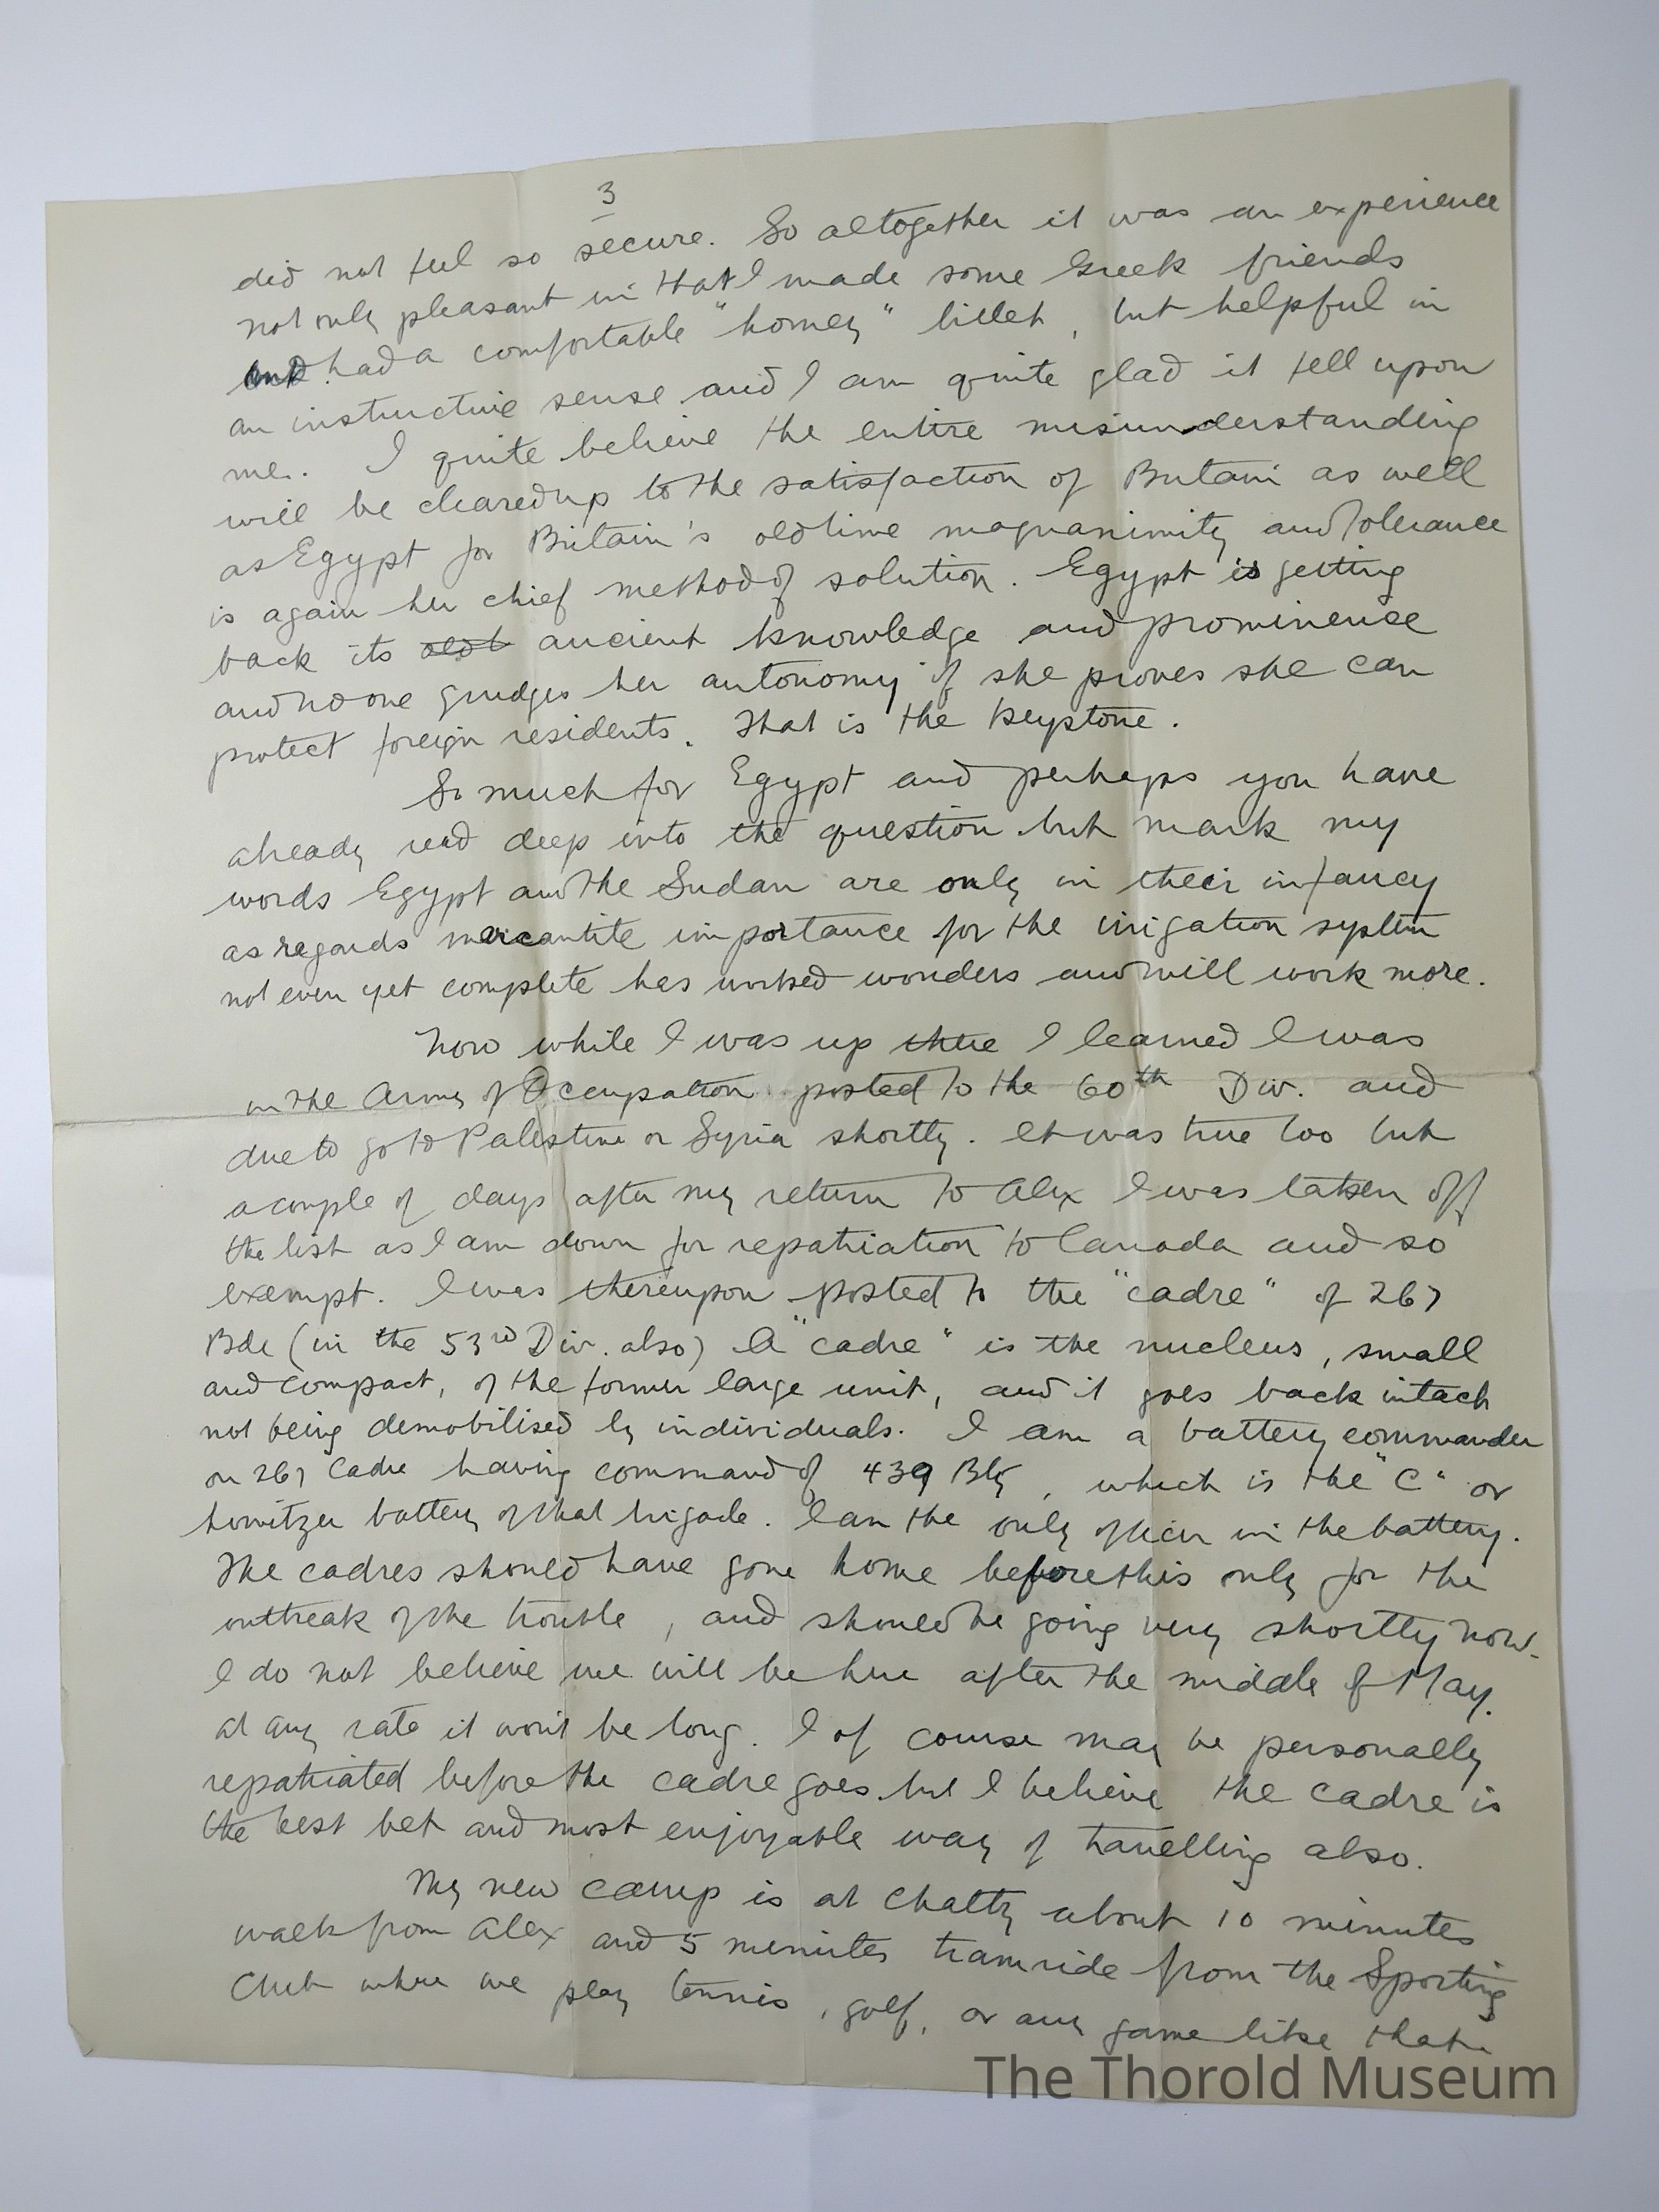 3
did not feel so secure. So altogether it was an experience
not only pleasant in that I made some Greek friends
and had a comfortable "homey" billet, but helpful in
an instructive sense and I am quite glad it fell upon
me. I quite believe the entire misunderstanding
will be cleared up to the satisfaction of Britain as well
as Egypt for Britain's old time magnanimity and tolerance
is again her chief method of solution. Egypt is getting
back its old ancient knowledge and prominence
and no one grudges her autonomy if she proves she can
protect foreign residents. That is the keystone.
So much for Egypt and perhaps you have
already read deep into the question but mark my
words Egypt and the Sudan are only in their infancy
as regards mercantile importance for the irrigation system
not even yet complete has worked wonders and will work more.
Now while I was up there I learned I was
in the Army of Occupation posted to the 60th Div. and
due to go to Palestine or Syria shortly. It was true too but
a couple of days after my return to Alex I was taken off
the list as I am down for repatriation to Canada and so
exempt. I was thereupon posted to the "cadre" of 267
Bde (in the 53rd Div. also) A "cadre" is the nucleus, small
and compact, of the former large unit, and it goes back intact
not being demobilised by individuals. I am a battery commander
on 267 Cadre having command of 439 Bty, which is the "C" or
howitzer battery of that brigade. I am the only officer in the battery.
The cadres should have gone home before this only for the
outbreak of the trouble, and should be going very shortly now.
I do not believe we will be here after the middle of May.
at any rate it won't be long. I of course may be personally
repatriated before the cadre goes but I believe the cadre is
the best bet and most enjoyable way of travelling also.
My new camp is at Chatby about 10 minutes
walk from Alex and 5 minutes tramride from the Sporting
Club where we play tennis, golf, or any game like that.
The Thorold Museum